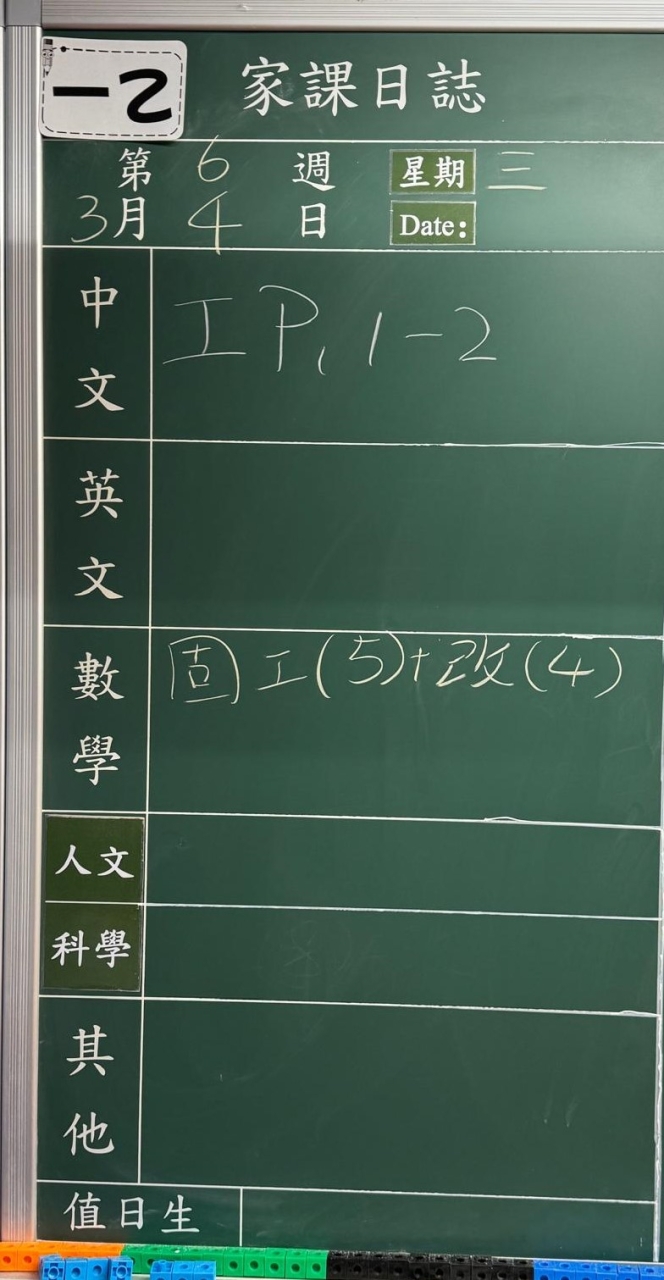 一2 家課日誌
第 6 週 星期 三
3月 4 日 Date:
中文 工 P. 1-2
英文
數學 固 工(5)+改(4)
人文
科學
其他
值日生